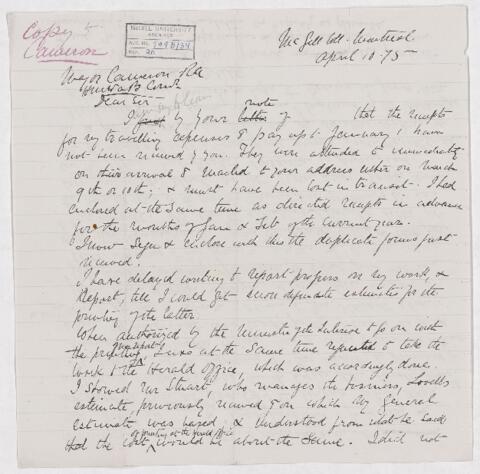 Copy to
Cameron
McGILL UNIVERSITY
ARCHIVES
ACC. NO.
REF.
McGill Coll. Montreal
April 10. 75
Major Cameron RA
Dear Sir
I by your note of that the receipts
for my travelling expenses & pay up to January 1 have
not been received by you. They were attended to immediately
on their arrival & mailed to your address either on March
9th or 10th; & must have been lost in transit. I had
enclosed at the same time as directed receipts in advance
for the months of Jan & Feb of the current year.
I now sign & enclose with this the duplicate forms just
received.
I have delayed writing to report progress on my work, &
Report, till I could get more definite estimates for the
printing of the latter.
When authorized by the Minister of the Interior to go on with
the printing I was at the same time requested to take the
work to the Herald office, which was accordingly done.
I showed Mr Stuart, who manages the business, Lovells
estimate, previously received & on which my general
estimate was based, & understood from what he said
that the cost of printing at the Herald Office would be about the same. I did not